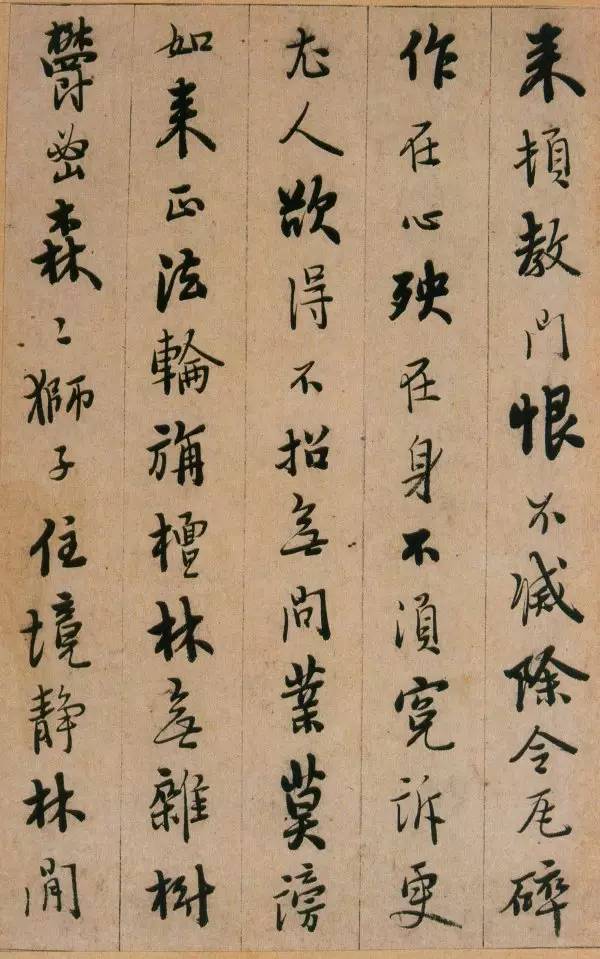 来頓教門恨不滅除令瓦碎
作在心殃在身不須寃訴更
尤人欲得不招無間業莫謗
如来正法輪旃檀林無雜樹
鬱密森〻獅子住境静林間